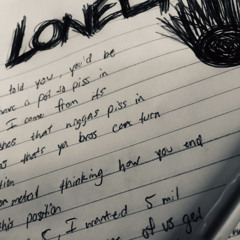 LONELY
told you, you'd be
have a pot to piss in
I come from its
that niggas piss in
that's ya bros can turn
on metal thinking how you end
this position
I wanted 5 mil
of us get